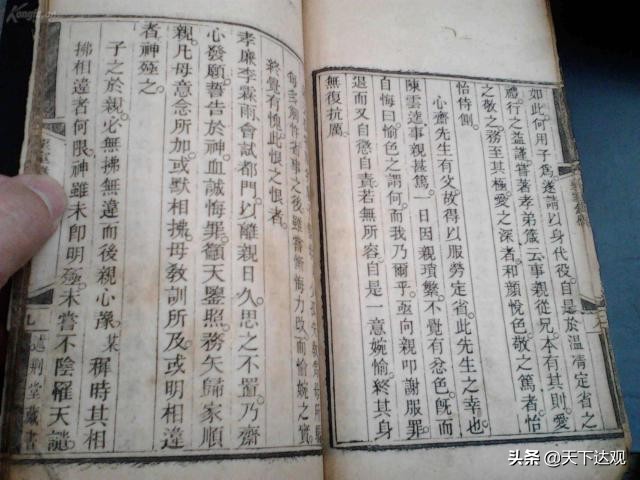 如此何用子爲遂請以身代役自是於溫凊定省之
禮行之益謹嘗著孝弟箴云事親從兄本有其則愛
之敬之務至其極愛之深者和顔悅色敬之篤者怡
怡侍側
心齋先生有父故得以服勞定省此先生之幸也
陳雲逵事親甚篤一日因親瑣繁不覺有忿色旣而
自悔曰愉色之謂何而我乃爾乎亟向親叩謝服罪
退而又自慙自責若無所容自是一意婉愉終其身
無復抗厲
省事之後雖嘗漸悔力改而愉婉之實
終覺有愧此恨之恨者
孝廉李霖雨會試都門以離親日久思之不置乃齋
心發願誓告於神血誠悔罪籲天鑒照務矢歸家順
親凡母意念所加或默相拂母敎訓所及或明相違
者神殛之
子之於親必無拂無違而後親心豫某穉時其相
拂相違者何限神雖未卽明殛未嘗不陰罹天譴
九
述荆堂藏書
头条 @天下达观